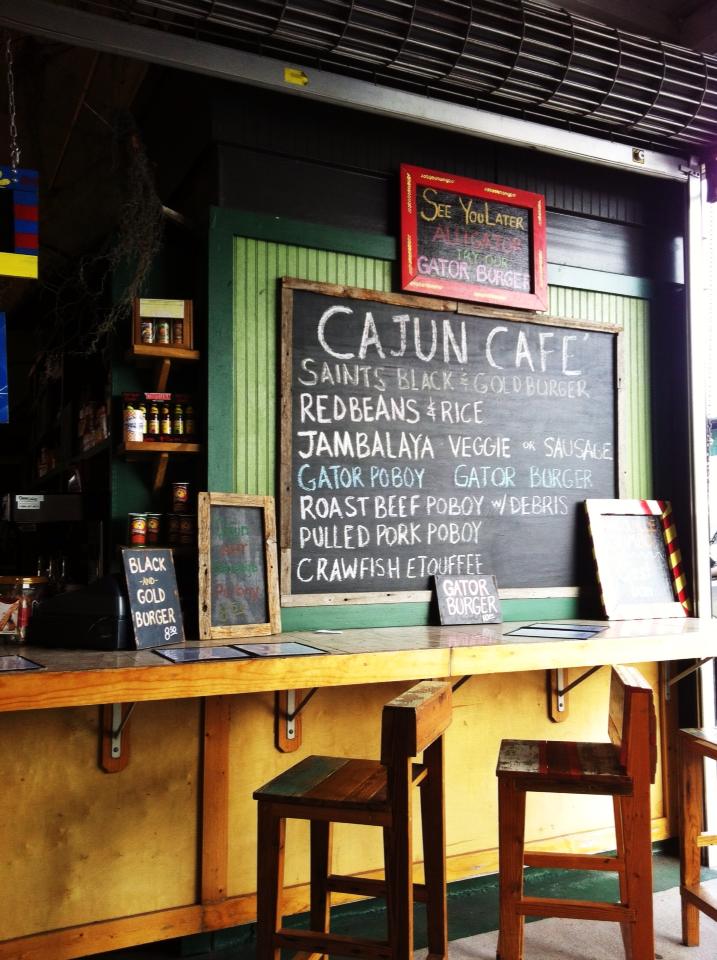 SEE YOU LATER
ALLIGATOR
TRY OUR
GATOR BURGER
CAJUN CAFE´
SAINTS BLACK & GOLD BURGER
REDBEANS & RICE
JAMBALAYA VEGGIE OR SAUSAGE
GATOR POBOY GATOR BURGER
ROAST BEEF POBOY W/ DEBRIS
PULLED PORK POBOY
CRAWFISH ETOUFFEE
BLACK
-AND-
GOLD
BURGER
8.50
GATOR
BURGER